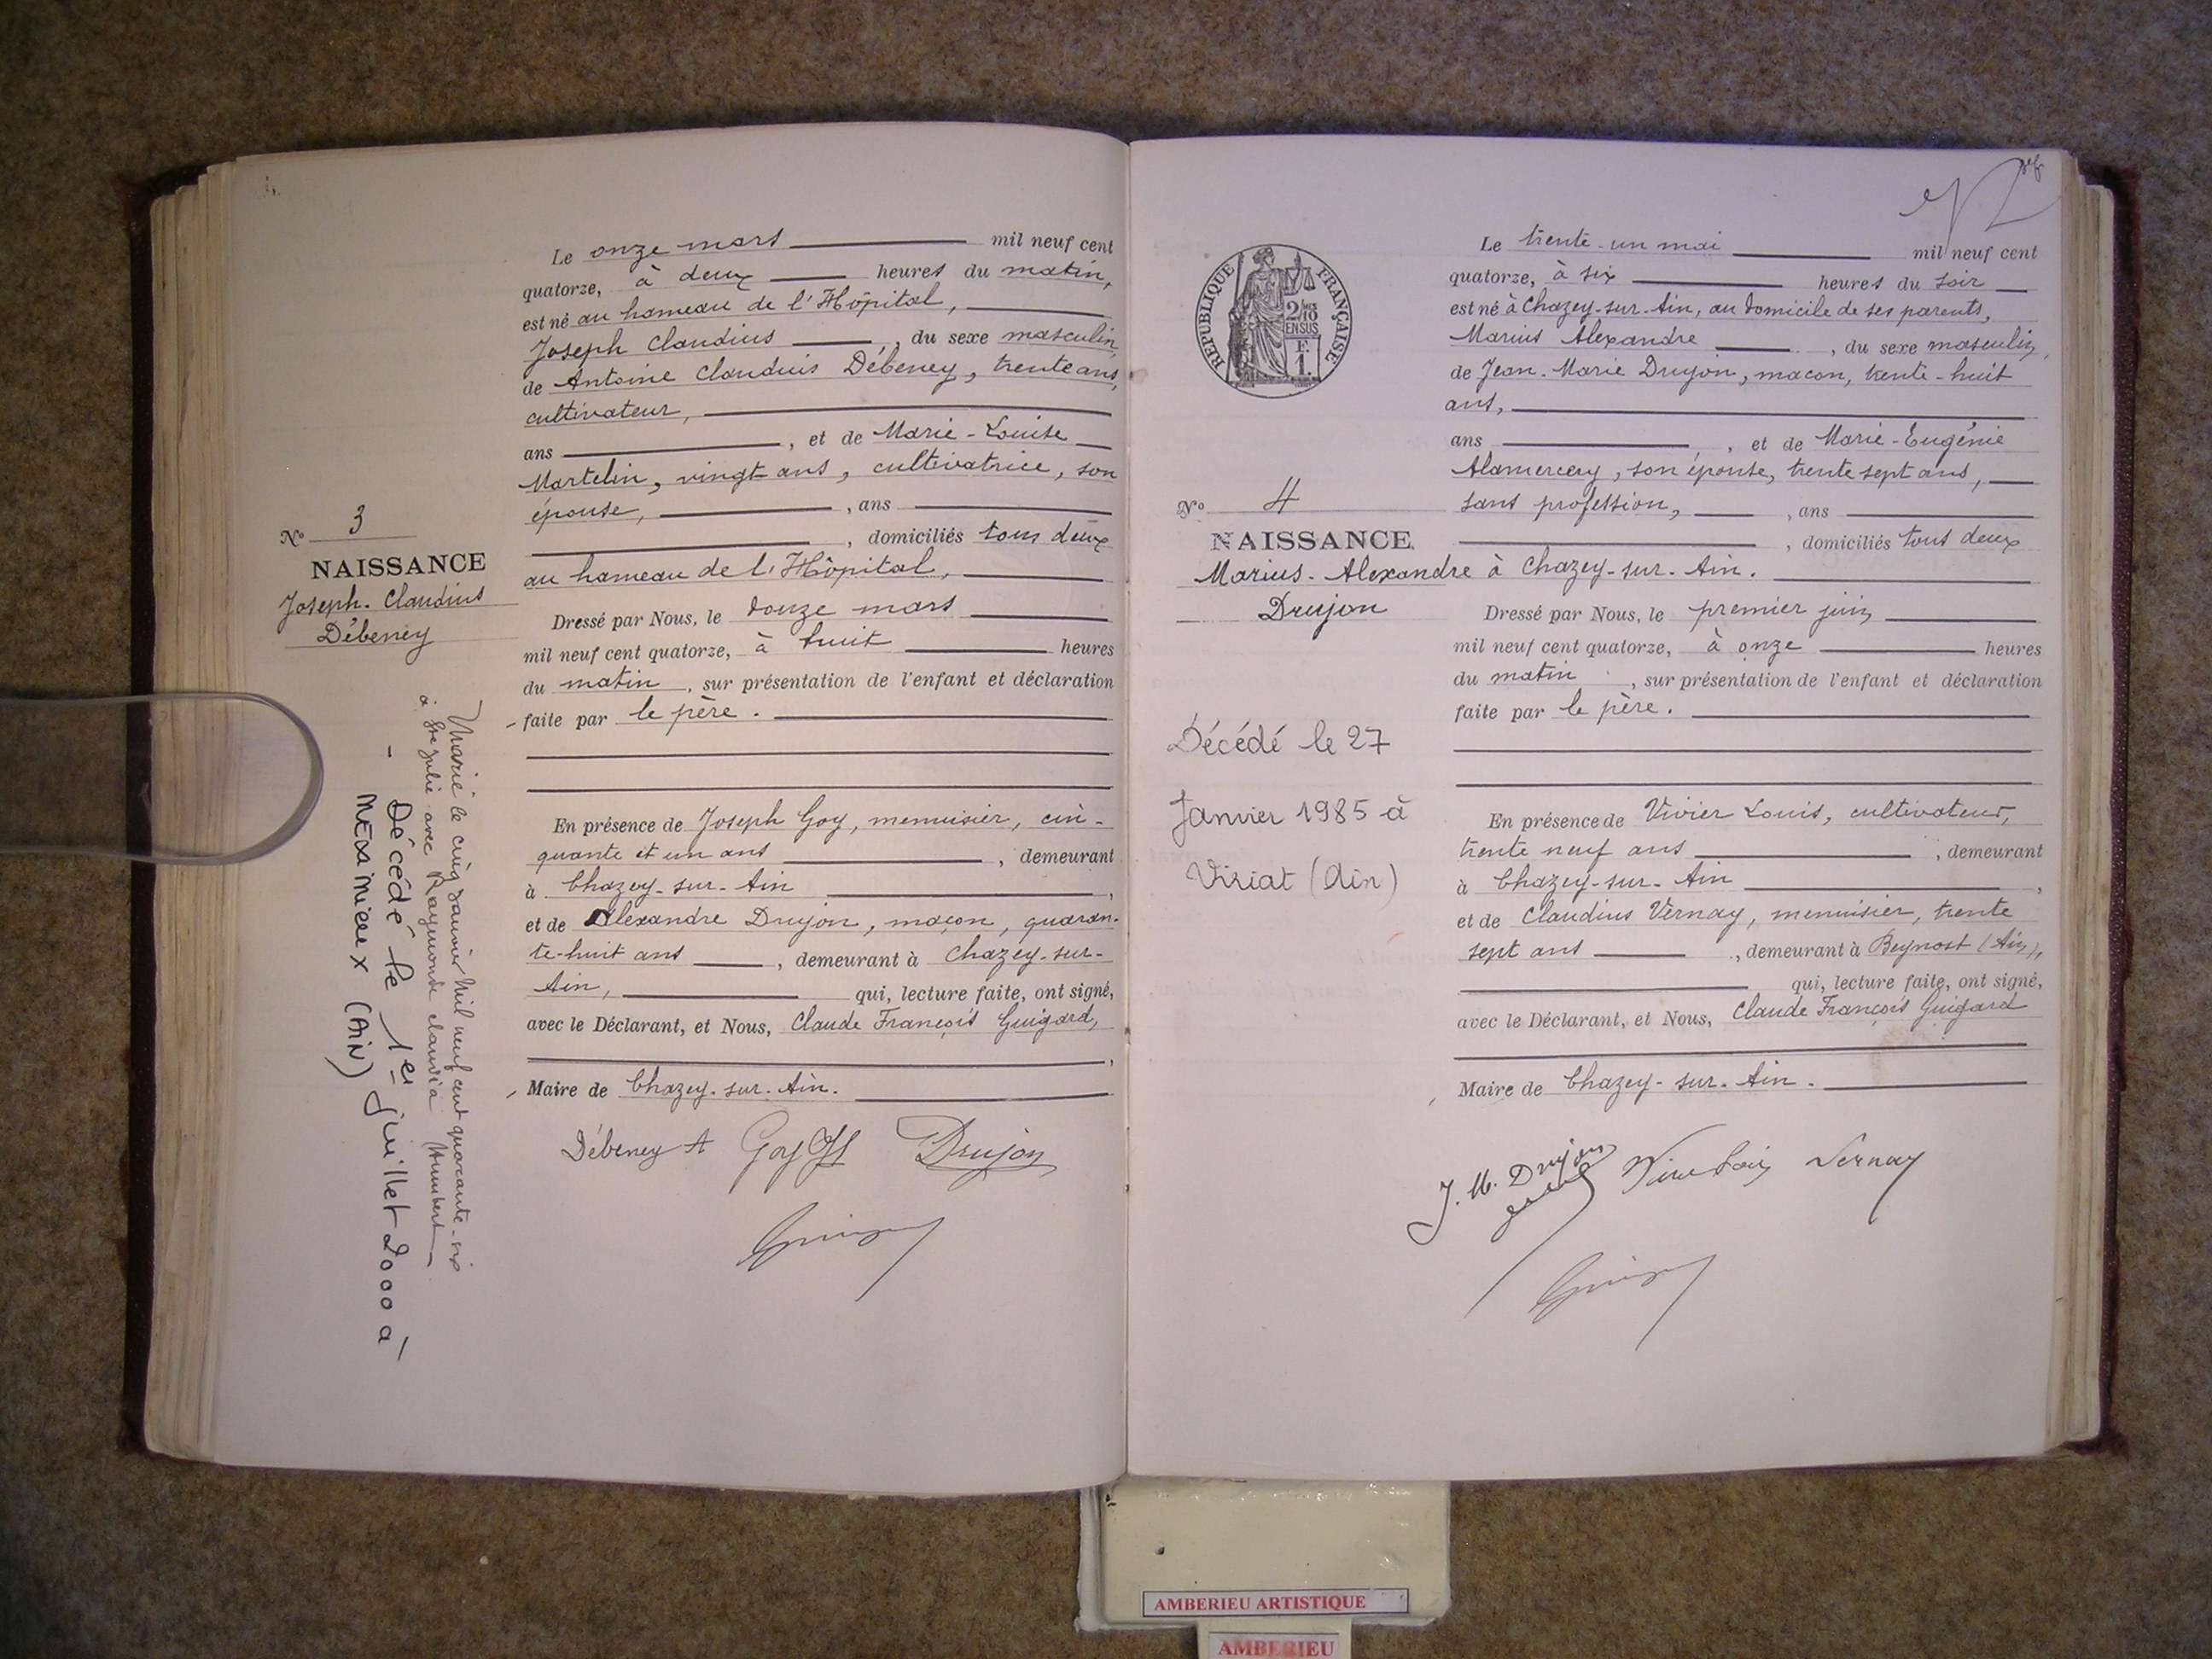 Le onze mars mil neuf cent
quatorze, à deux heures du matin,
est né au hameau de l'Hôpital,
Joseph Claudius , du sexe masculin,
de Antoine Claudius Débeney, trente ans,
cultivateur,
ans , et de Marie-Louise
Martelin, vingt ans, cultivatrice, son
épouse, , ans
, domiciliés tous deux
au hameau de l'Hôpital,
Dressé par Nous, le douze mars
mil neuf cent quatorze, à huit heures
du matin , sur présentation de l'enfant et déclaration
faite par le père.
En présence de Joseph Goy, menuisier, cin-
quante et un ans , demeurant
à Chazey-sur-Ain ,
et de Alexandre Drujon, maçon, quaran-
te-huit ans , demeurant à Chazey-sur-
Ain, qui, lecture faite, ont signé,
avec le Déclarant, et Nous, Claude François Guigard,
,
Maire de Chazey-sur-Ain.
Débeney A Goy Drujon
N° 3
NAISSANCE
Joseph-Claudius
Débeney
Marié le cinq janvier mil neuf cent quarante-six
à Ste Julie avec Raymonde Claudia Humbert
- Décédé le 1er juillet 2000 à
MEXIMIEUX (AIN)
RÉPUBLIQUE FRANÇAISE
2/10
EN SUS
F.
1.
N° 4
NAISSANCE
Marius-Alexandre
Drujon
Décédé le 27
Janvier 1985 à
Viriat (Ain)
Le trente-un mai mil neuf cent
quatorze, à six heures du soir
est né à Chazey-sur-Ain, au domicile de ses parents,
Marius Alexandre , du sexe masculin,
de Jean-Marie Drujon, macon, trente-huit
ans,
ans , et de Marie-Eugénie
Alamercery, son épouse, trente sept ans,
sans profession, , ans
, domiciliés tous deux
à Chazey-sur-Ain.
Dressé par Nous, le premier juin
mil neuf cent quatorze, à onze heures
du matin , sur présentation de l'enfant et déclaration
faite par le père.
En présence de Vivier Louis, cultivateur,
trente neuf ans , demeurant
à Chazey-sur-Ain ,
et de Claudius Vernay, menuisier, trente
sept ans , demeurant à Beynost (Ain),
qui, lecture faite, ont signé,
avec le Déclarant, et Nous, Claude François Guigard
Maire de Chazey-sur-Ain.
J. M. Drujon Vernay
AMBERIEU ARTISTIQUE
AMBERIEU